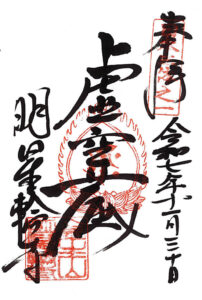 奉拝
令和七年十一月三十日
虚空蔵
明星輪寺